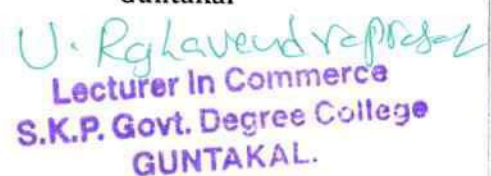 Guntakal
U. Raghavendraprasad
Lecturer In Commerce
S.K.P. Govt. Degree College
GUNTAKAL.